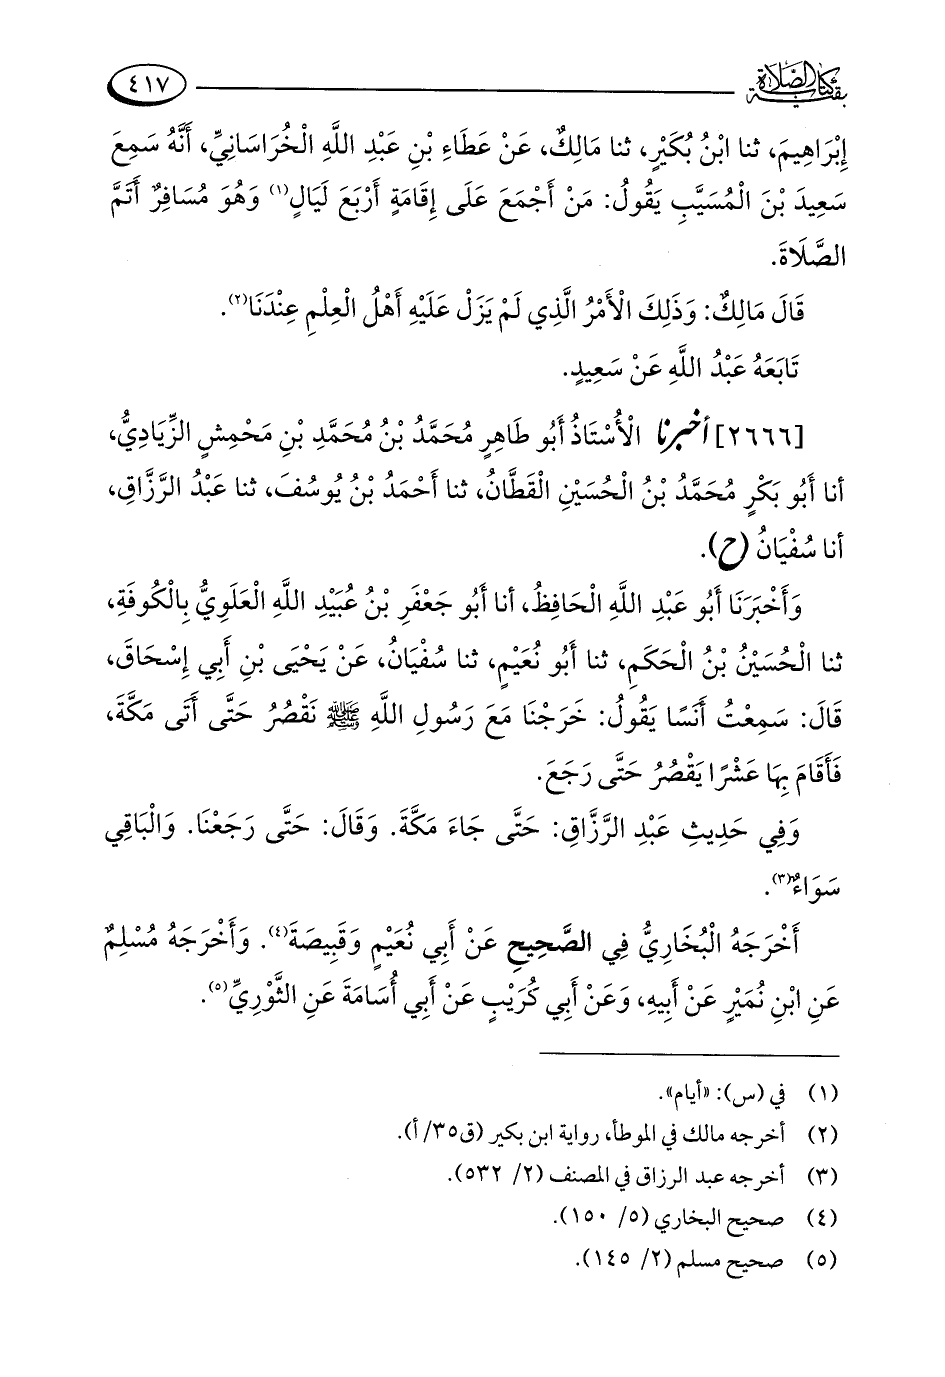 بقية كتاب الصلاة
٤١٧
إِبْرَاهِيمَ، ثنا ابْنُ بُكَيْرٍ، ثنا مَالِكٌ، عَنْ عَطَاءِ بْنِ عَبْدِ اللَّهِ الْخُرَاسَانِيِّ، أَنَّهُ سَمِعَ
سَعِيدَ بْنَ الْمُسَيَّبِ يَقُولُ: مَنْ أَجْمَعَ عَلَى إِقَامَةِ أَرْبَعَ لَيَالٍ(١) وَهُوَ مُسَافِرٌ أَتَمَّ
الصَّلَاةَ.
قَالَ مَالِكٌ: وَذَلِكَ الْأَمْرُ الَّذِي لَمْ يَزَلْ عَلَيْهِ أَهْلُ الْعِلْمِ عِنْدَنَا(٢).
تَابَعَهُ عَبْدُ اللَّهِ عَنْ سَعِيدٍ.
[٢٦٦٦] أخبرنا الْأُسْتَاذُ أَبُو طَاهِرٍ مُحَمَّدُ بْنُ مُحَمَّدِ بْنِ مَحْمِشٍ الزِّيَادِيُّ،
أنا أَبُو بَكْرٍ مُحَمَّدُ بْنُ الْحُسَيْنِ الْقَطَّانُ، ثنا أَحْمَدُ بْنُ يُوسُفَ، ثنا عَبْدُ الرَّزَّاقِ،
أنا سُفْيَانُ (ح).
وَأَخْبَرَنَا أَبُو عَبْدِ اللَّهِ الْحَافِظُ، أنا أَبُو جَعْفَرِ بْنُ عُبَيْدِ اللَّهِ الْعَلَوِيُّ بِالْكُوفَةِ،
ثنا الْحُسَيْنُ بْنُ الْحَكَمِ، ثنا أَبُو نُعَيْمٍ، ثنا سُفْيَانُ، عَنْ يَحْيَى بْنِ أَبِي إِسْحَاقَ،
قَالَ: سَمِعْتُ أَنَسًا يَقُولُ: خَرَجْنَا مَعَ رَسُولِ اللَّهِ ﷺ نَقْصُرُ حَتَّى أَتَى مَكَّةَ،
فَأَقَامَ بِهَا عَشْرًا يَقْصُرُ حَتَّى رَجَعَ.
وَفِي حَدِيثِ عَبْدِ الرَّزَّاقِ: حَتَّى جَاءَ مَكَّةَ. وَقَالَ: حَتَّى رَجَعْنَا. وَالْبَاقِي
سَوَاءٌ(٣).
أَخْرَجَهُ الْبُخَارِيُّ فِي الصَّحِيحِ عَنْ أَبِي نُعَيْمٍ وَقَبِيصَةَ(٤). وَأَخْرَجَهُ مُسْلِمٌ
عَنِ ابْنِ نُمَيْرٍ عَنْ أَبِيهِ، وَعَنْ أَبِي كُرَيْبٍ عَنْ أَبِي أُسَامَةَ عَنِ الثَّوْرِيِّ(٥).
(١) في (س): «أيام».
(٢) أخرجه مالك في الموطأ، رواية ابن بكير (ق٣٥/ أ).
(٣) أخرجه عبد الرزاق في المصنف (٢/ ٥٣٢).
(٤) صحيح البخاري (٥/ ١٥٠).
(٥) صحيح مسلم (٢/ ١٤٥).